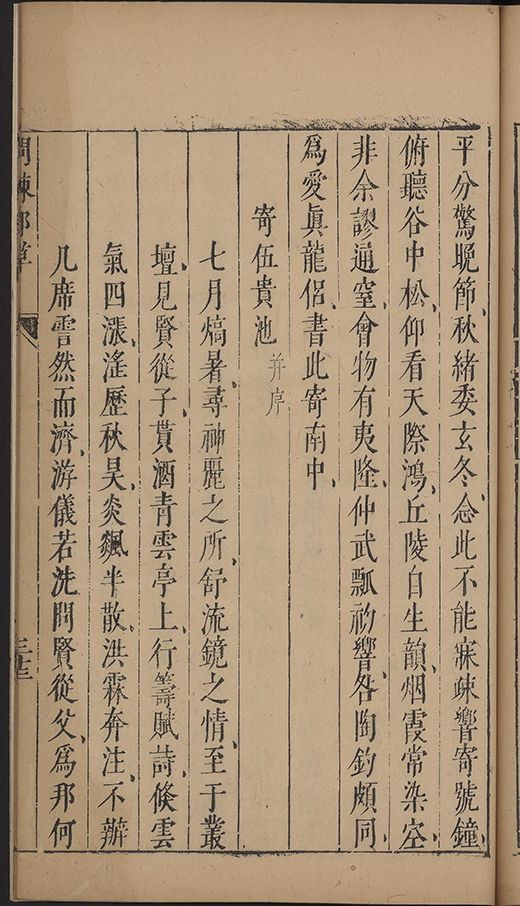 平分驚晚節、秋緒委玄冬、念此不能寐、疎響寄號鐘、
俯聽谷中松、仰看天際鴻、丘陵自生韻、烟霞常染空、
非余謬通窒、會物有夷隆、仲武瓢礿響、咎陶釣頗同、
為愛眞龍侶、書此寄南中、
寄伍貴池 并序
七月熇暑、尋神麗之所、舒流鏡之情、至于叢
壇、見賢從子、貰酒青雲亭上、行籌賦詩、倐雲
氣四漲、滛歷秋昊、炎飆半散、洪霖奔注、不辦
几席、霅然而濟、游儀若洗、問賢從父、為那何
三十三